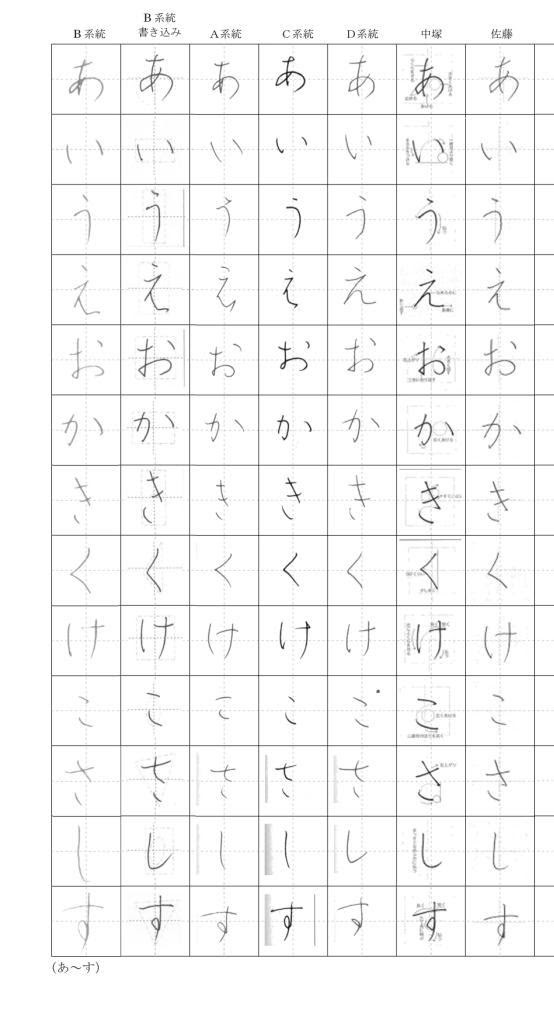 B系統 B系統 書き込み A系統 C系統 D系統 中塚 佐藤
あ あ あ あ あ あ あ
い い い い い い い
う う う う う う う
え え え え え え え
お お お お お お お
か か か か か か か
き き き き き き き
く く く く く く く
け け け け け け け
こ こ こ こ こ こ こ
さ さ さ さ さ さ さ
し し し し し し し
す す す す す す す
(あ〜す)